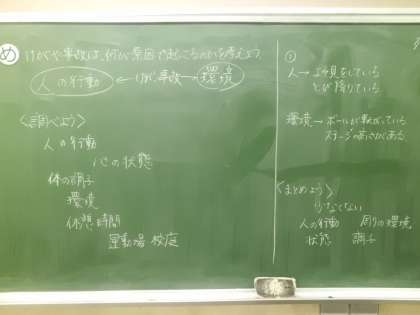 め けがや事故は、何が原因で起こるのかを考えよう。
人の行動 ←けが、事故→ 環境
〈調べよう〉
人の行動
心の状態
体の調子
環境
休憩時間
運動場 校庭
①
人→よそ見をしている
とび降りている
環境→ボールが転がっている
ステージの高さがある
〈まとめよう〉
少なくない
人の行動 周りの環境
状態 調子